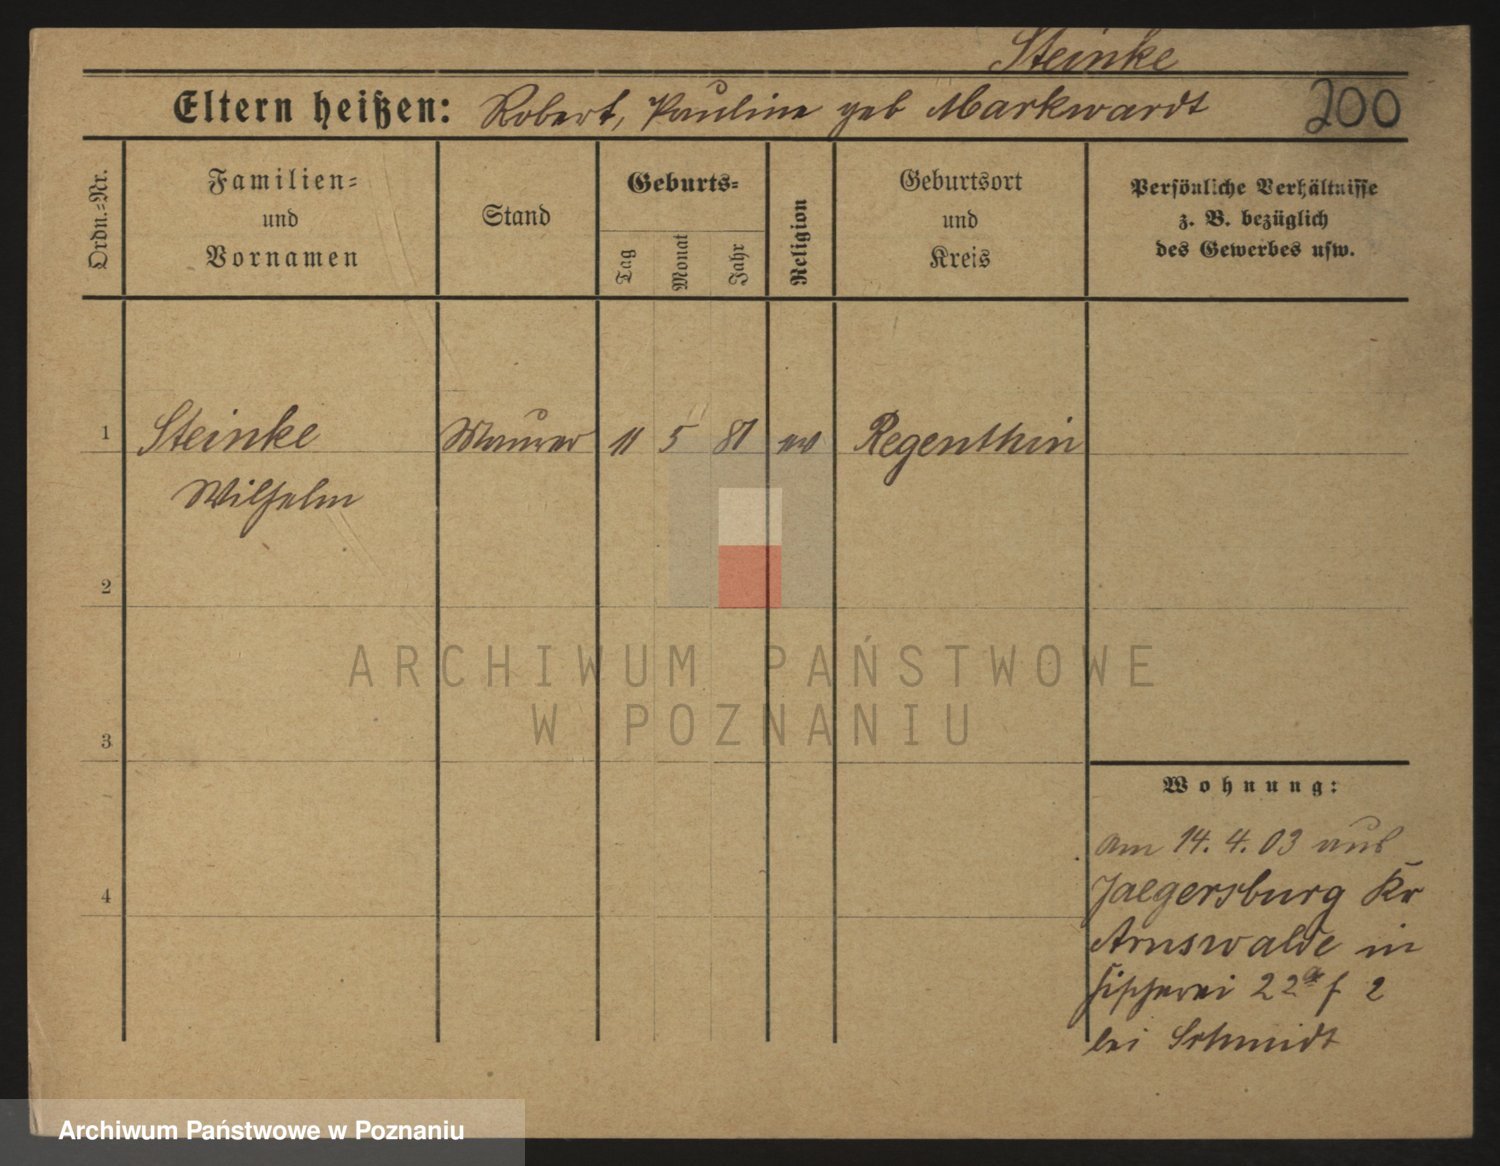 Steinke
Eltern heißen: Robert, Pauline geb Markwardt 200
Ordn.=Nr.
Familien=
und
Vornamen
Stand
Geburts=
Tag
Monat
Jahr
Religion
Geburtsort
und
Kreis
Persönliche Verhältnisse
z. B. bezüglich
des Gewerbes usw.
1 Steinke Maurer 11 5 81 ev Regenthin
Wilhelm
2
3
4
Wohnung:
am 14. 4. 03 aus
Jaegersburg Kr
Arnswalde in
Fischerei 22a f 2
bei Schmidt
ARCHIWUM PAŃSTWOWE
W POZNANIU
Archiwum Państwowe w Poznaniu